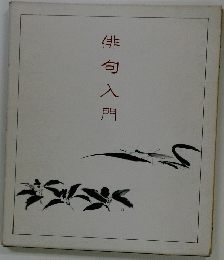 俳句入門